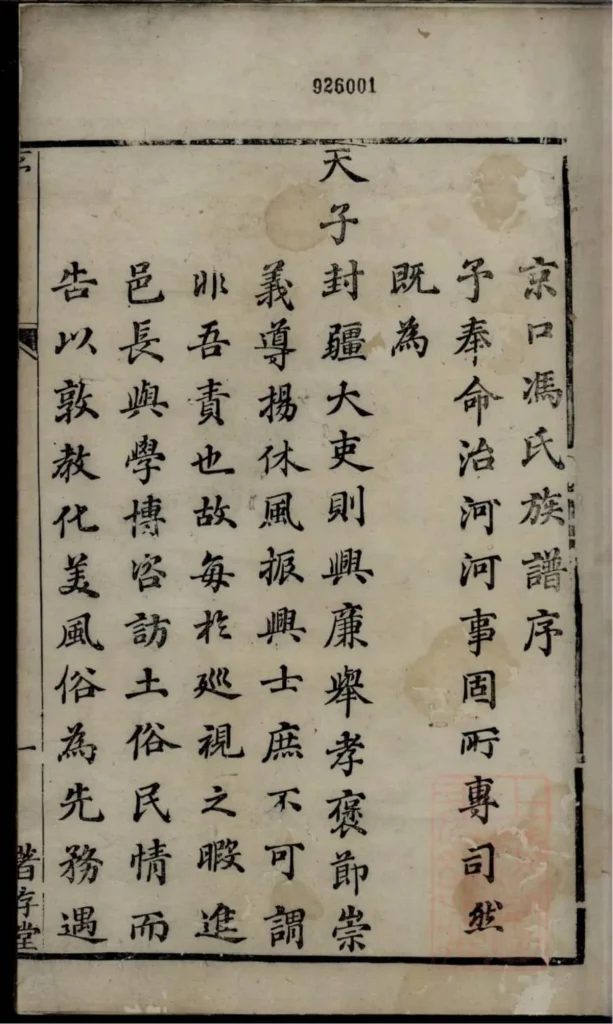 926001
京口馮氏族譜序
予奉命治河河事固所專司然
既為
天子封疆大吏則興廉舉孝褒節崇
義導揚休風振興士庶不可謂
非吾責也故每於巡視之暇進
邑長與學博咨訪土俗民情而
告以敦教化美風俗為先務遇
序
一
階存堂